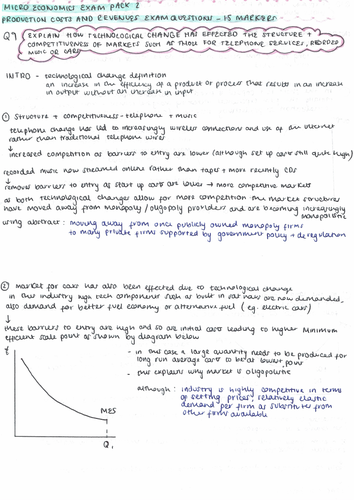 MICRO ECONOMICS EXAM PACK 2
PRODUCTION COSTS AND REVENUES EXAM QUESTIONS - 15 MARKERS
Q7 EXPLAIN HOW TECHNOLOGICAL CHANGE HAS EFFECTED THE STRUCTURE +
COMPETITIVENESS OF MARKETS SUCH AS THOSE FOR TELEPHONE SERVICES, RECORDED
MUSIC OR CARS
INTRO - technological change definition
an increase in the efficiency of a product or process that results in an increase
in output without an increase in input
① Structure + competitiveness - telephone + music
telephone change has led to increasingly wireless connections and use of the internet
rather than traditional telephone wires
↓
increased competition as barriers to entry are lower (although set up costs still quite high)
recorded music now streamed online rather than tapes + more recently CDs
↓
remove barriers to entry as start up costs are lower → more competitive markets
as both technological changes allow for more competition the market structures
have moved away from monopoly/oligopoly providers and are becoming increasingly
monopolistic
using abstract: moving away from once publicly owned monopoly firms
to many private firms supported by government policy + deregulation
② market for cars has also been effected due to technological change
in this industry high tech components such as built in sat navs are now demanded,
also demand for better fuel economy or alternative fuel (eg. electric cars)
↓
these barriers to entry are high and so are initial costs leading to higher minimum
efficient scale point as shown by diagram below
£
- in this case a large quantity needs to be produced for
long run average costs to be at lowest point
- this explains why market is oligopolistic
although: industry is highly competitive in terms
of setting prices, relatively elastic
demand per firm as substitutes from
other firms available
MES
Q1